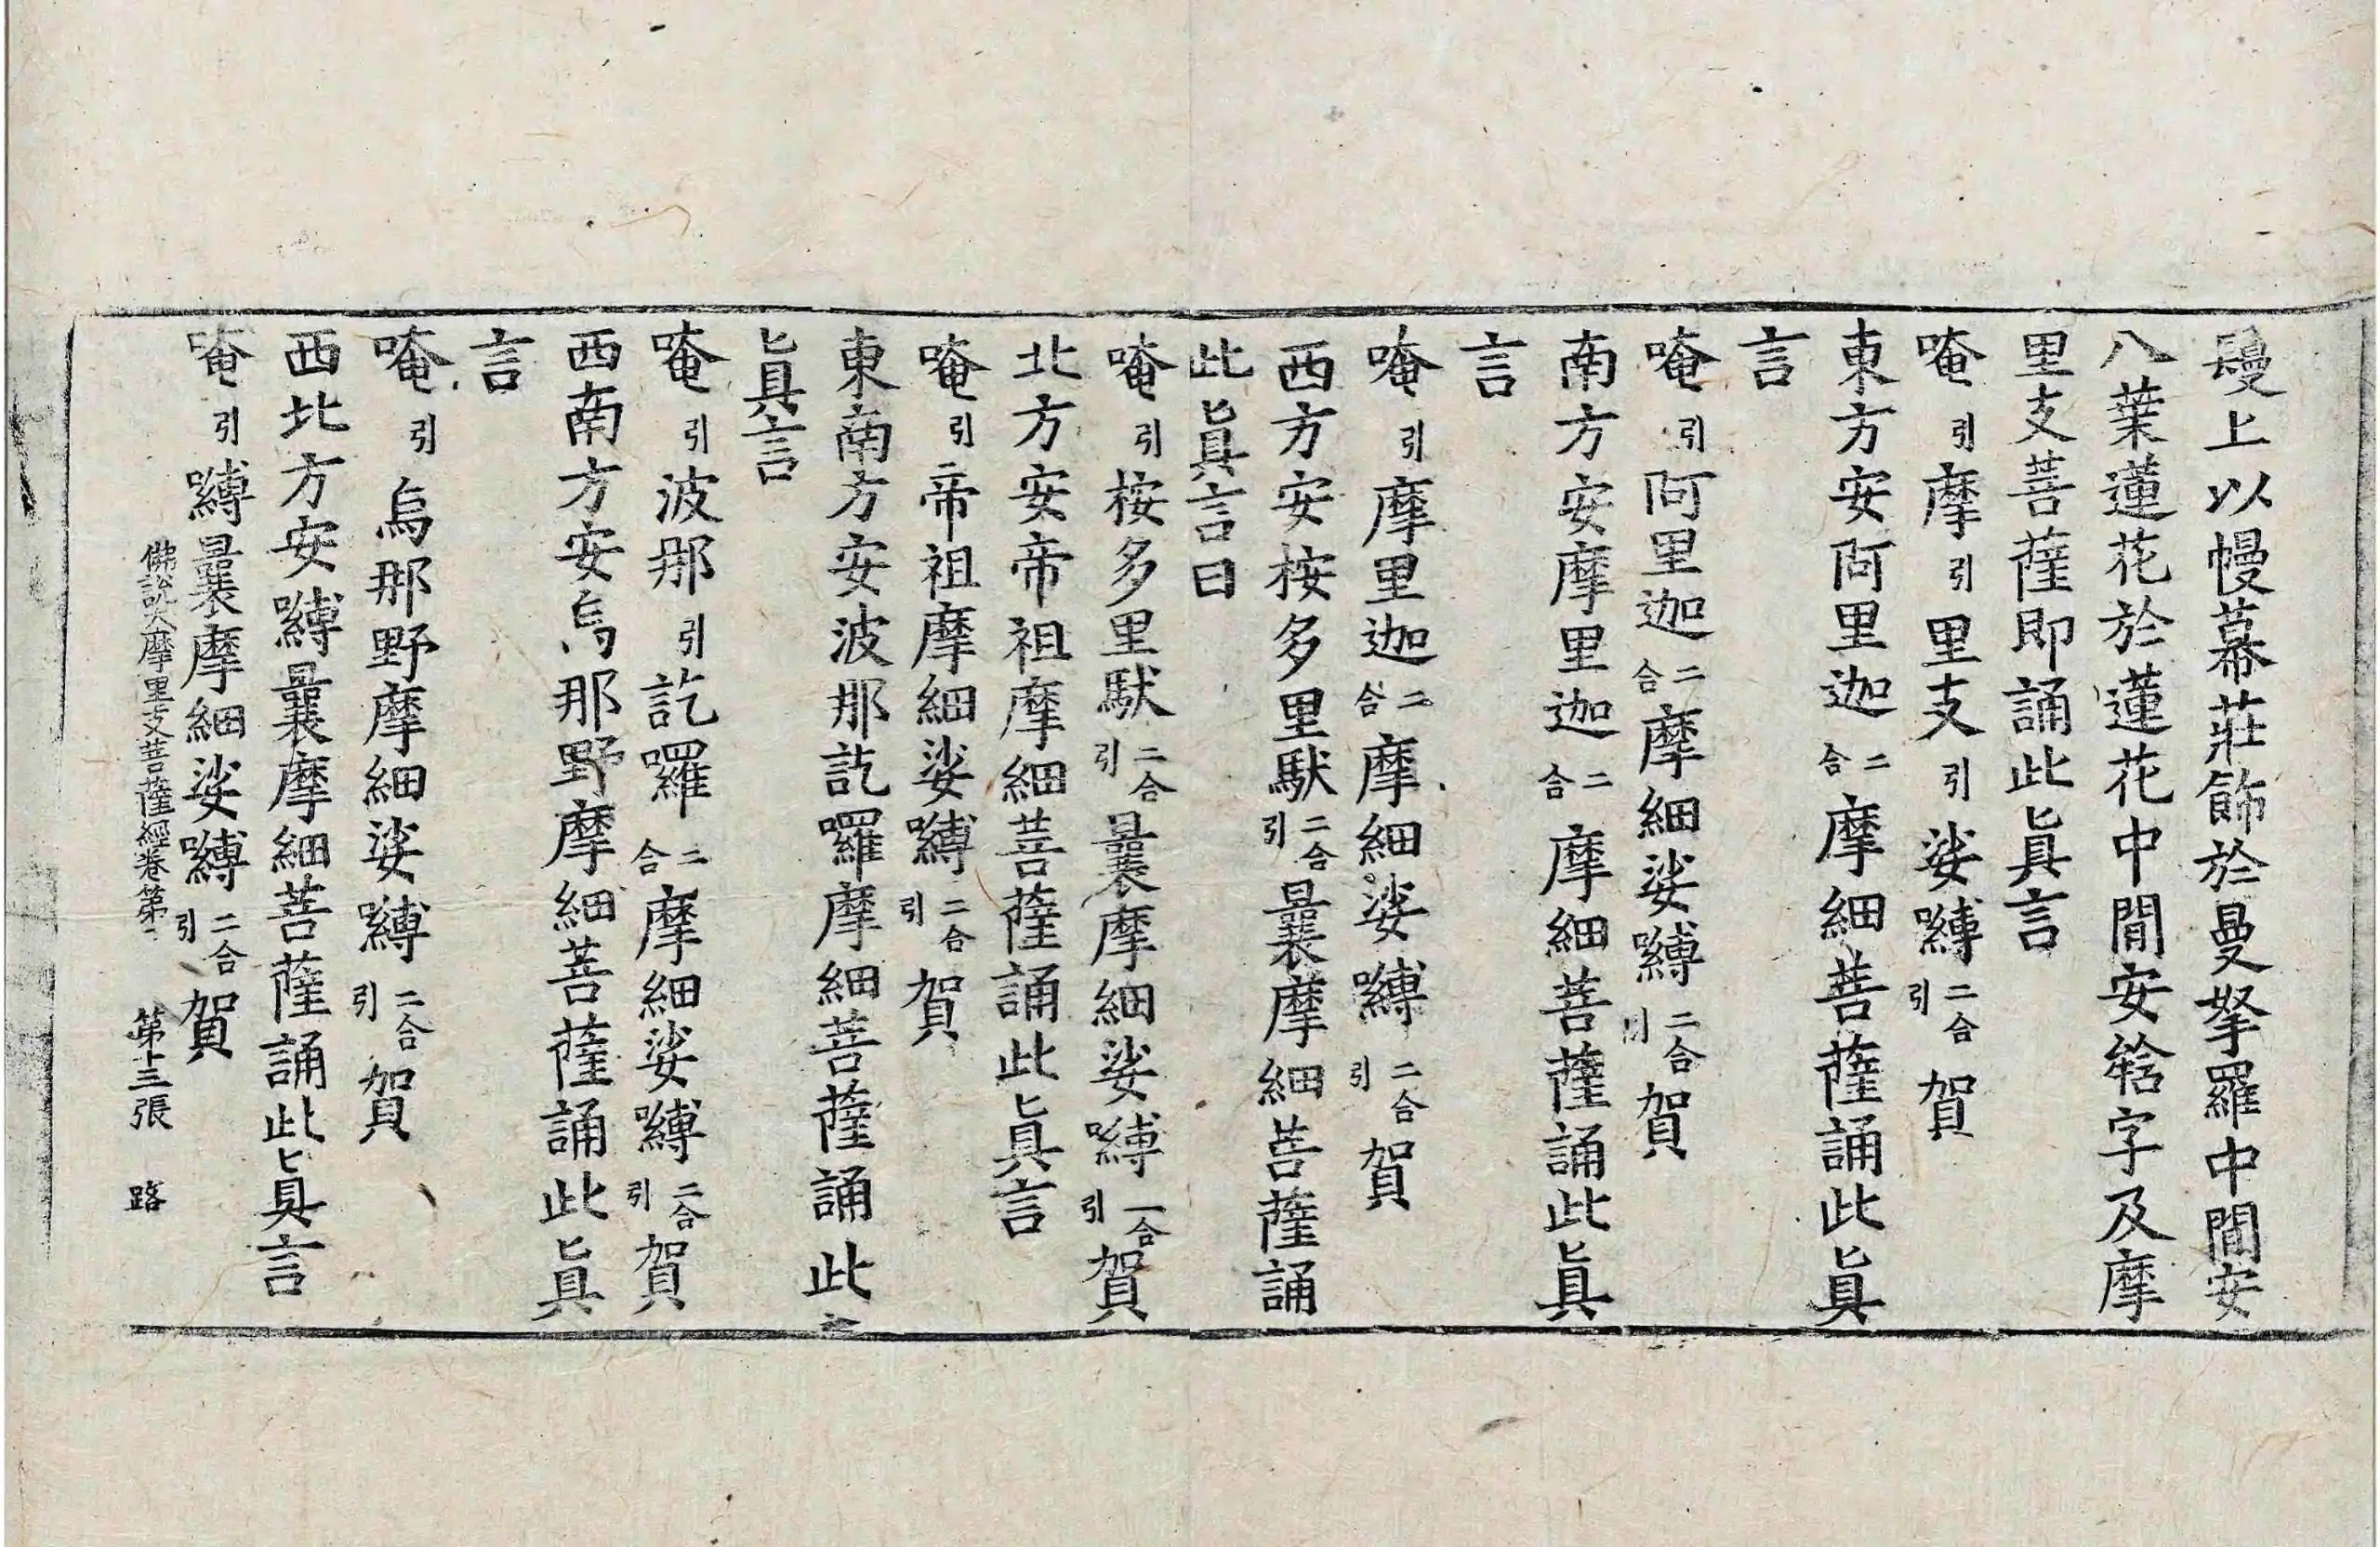 鬘上以幔幕莊飾於曼拏羅中間安
八葉蓮花於蓮花中間安𤚥字及摩
里支菩薩即誦此眞言
唵引摩引里支引娑嚩二合引賀
東方安阿里迦二合摩細菩薩誦此眞
言
唵引阿里迦二合摩細娑嚩二合引賀
南方安摩里迦二合摩細菩薩誦此眞
言
唵引摩里迦二合摩細娑嚩二合引賀
西方安桉多里馱二合引曩摩細菩薩誦
此眞言曰
唵引桉多里馱二合引曩摩細娑嚩二合引賀
北方安帝祖摩細菩薩誦此眞言
唵引帝祖摩細娑嚩二合引賀
東南方安波那訖囉摩細菩薩誦此
眞言
唵引波那引訖囉二合摩細娑嚩二合引賀
西南方安烏那野摩細菩薩誦此眞
言
唵引烏那野摩細娑嚩二合引賀
西北方安嚩曩摩細菩薩誦此眞言
唵引嚩曩摩細娑嚩二合引賀
佛說大摩里支菩薩經卷第 第十三張 路